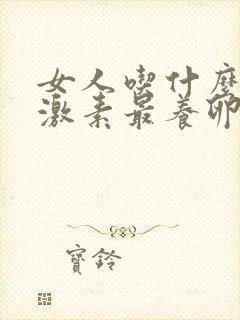 女人喫什麼
激素最養卵
寶鈴